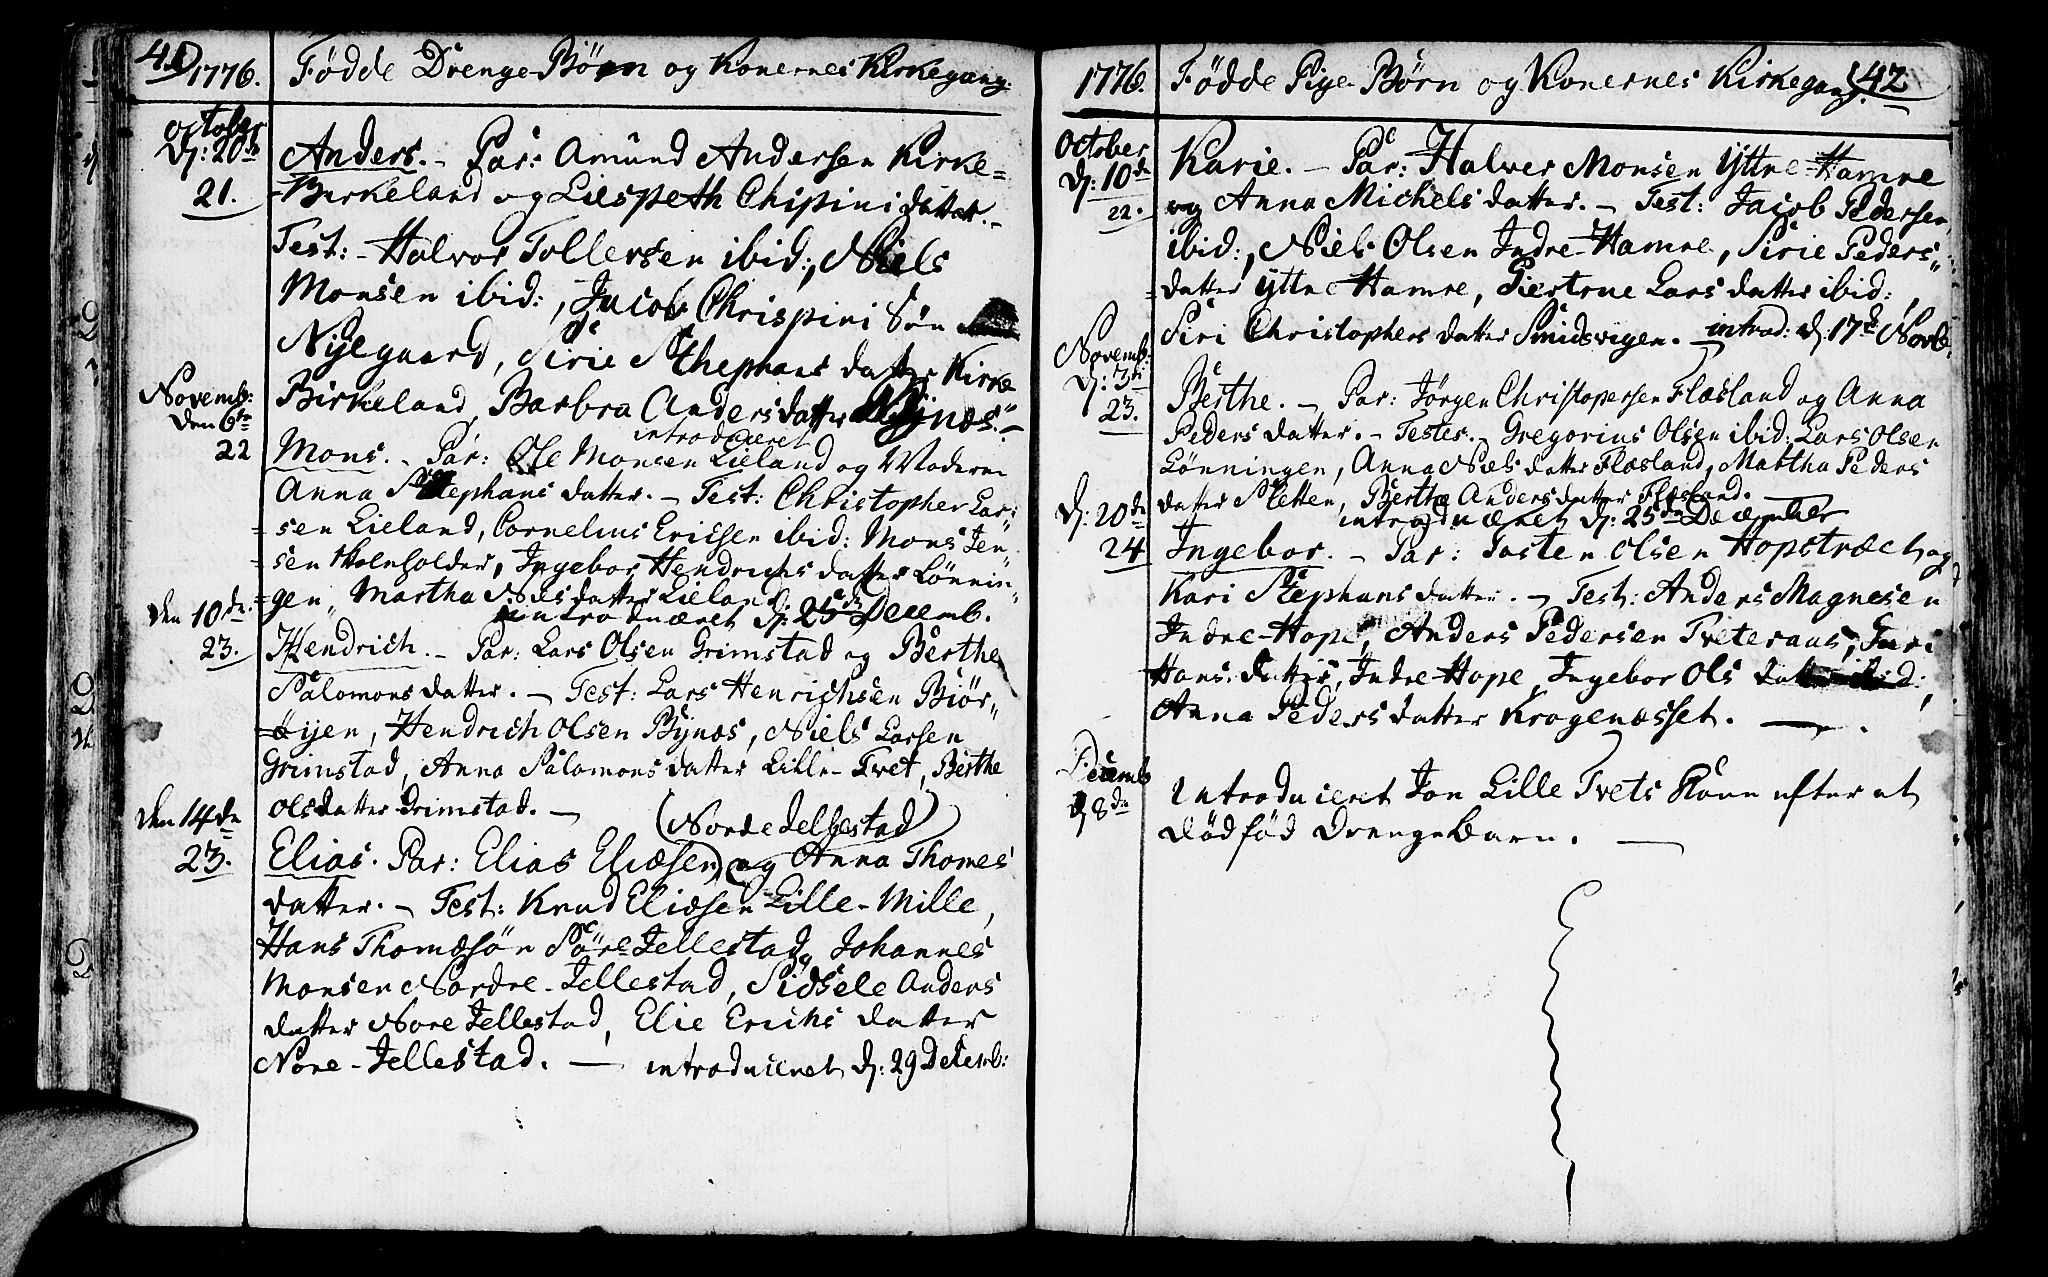 41
1776. Fødde Drenge-Børn og Konernes Kirkegang:
October
D: 20de
21.
Anders. - Par: Amund Andersen Kirke=
-Birkeland og Liespeth Chipini datter. -
Test: - Halvor Tollersen ibid:, Niels
Monsen ibid:, Jacob Chrispini Søn
Nyegaard, Sirie Stephans datter Kirke
Birkeland, Barbra Andersdatter Bynæs. -
Novemb:
den 6te
22
introduceret
Mons. - Par: Ole Monsen Lieland og Moderen
Anna Stephans datter. - Test: Christopher Lar=
=sen Lieland, Cornelius Ericsen ibid: Mons Jen
=sen Skoenholder, Ingebor Hendrichs datter Lønnin
=gen, Martha Nilsdatter Lieland
introduceret d: 25de Decemb.
den 10de.
23.
Hendrich. - Par: Lars Olsen Grimstad og Berthe
Salomons datter. - Test: Lars Henrichsen Biør
=øijen, Hendrich Olsen Bynæs, Niels Larsen
Grimstad, Anna Salomons datter Lille-Tvet, Berthe
Olsdatter Grimstad. -
den 14de
23.
(Norde Jelgestad)
Elias. Par: Elias Eliæsen og Anna Thomes
datter. - Test: Knud Eliæsen Lille-Mille,
Hans Thomæsøn Søre Jellestad, Johannes
Monsen Nordre-Jellestad, Sidsele Anders
datter Nore Jellestad, Elie Erichs datter
Nore-Jellestad. - introduceret d: 29 Decemb:
1776. Fødde Pige-Børn og Konernes Kirkegang. 42
October
D: 10de
22.
Karie. - Par: Halver Monsen Yttre-Hamre
og Anna Michels datter. - Test: Jacob Pedersen
ibid:, Niels Olsen Indre-Hamre, Sirie Peders
=datter Yttre Hamre, Giertrue Lars datter ibid:,
Siri Christophers datter Smidsvigen. - introd: d. 17de Novb.
Novemb:
D: 3die
23.
Berthe. - Par: Jørgen Christopersen Flæsland og Anna
Peders datter. - Testes. - Gregorius Olsen ibid: Lars Olsen
Lønningen, Anna Niels datter Flæsland, Martha Peders
datter Sletten, Berthe Andersdatter Flæsland. -
introduceret d: 25de December
D: 20de
24
Ingebor. - Par: Tosten Olsen Hopstræch og
Kari Stephans datter. - Test: Anders Magnesen
Indre-Hope, Anders Pedersen Tveteraas, Guri
Hans datter, Indre-Hope, Ingebor Ols datter ibid:,
Anna Peders datter Krogenæsset. -
Decemb
D 8de
Introduceret Jon Lille Tvets Kone efter et
dødfød Drengebarn. -